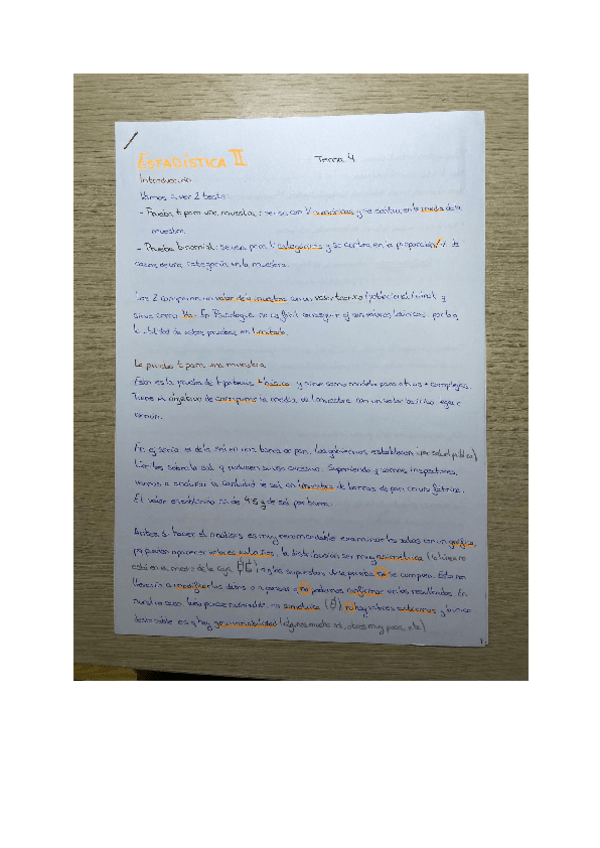 ESTADÍSTICA II Tema 4
Introducción
Vamos a ver 2 tests:
- Prueba t para una muestra: se usa con V numéricas y se centra en la media de la
muestra.
- Prueba binomial: se usa para V categóricas y se centra en la proporción/% de
casos de una categoría en la muestra.
Los 2 comparan un valor de la muestra con un valor teórico (poblacional) y
sirve como H₀. En Psicología no es fácil conseguir valores por lo q
la utilidad de estas pruebas es limitada.
La prueba t para una muestra
Esta es la prueba de hipótesis + básica y sirve como modelo para otras + complejas.
Tiene el objetivo de comparar la media de 1 muestra con un valor teórico
Un ej sería el de la sal en una barra de pan. Los gobiernos establecen (por salud pública)
límites sobre la sal y su uso excesivo. Suponiendo q somos inspectores,
vamos a analizar la cantidad de sal en muestra de barras de pan en una fábrica.
El valor establecido es de 4 g de sal por barra.
Antes de hacer el análisis es muy recomendable examinar los datos con un gráfico,
pq pueden aparecer valores la distribución ser muy asimétrica (la línea no
está en el medio de la caja) o q los supuestos de la prueba no se cumplan. Esto nos
llevaría a modificar los datos o a pensar q no podemos confiar en los resultados. En
nuestro caso, es simétrica no hay valores extremos y lo único
destacable es q hay gran variabilidad (algunos mucha sal, otros muy poca, etc)